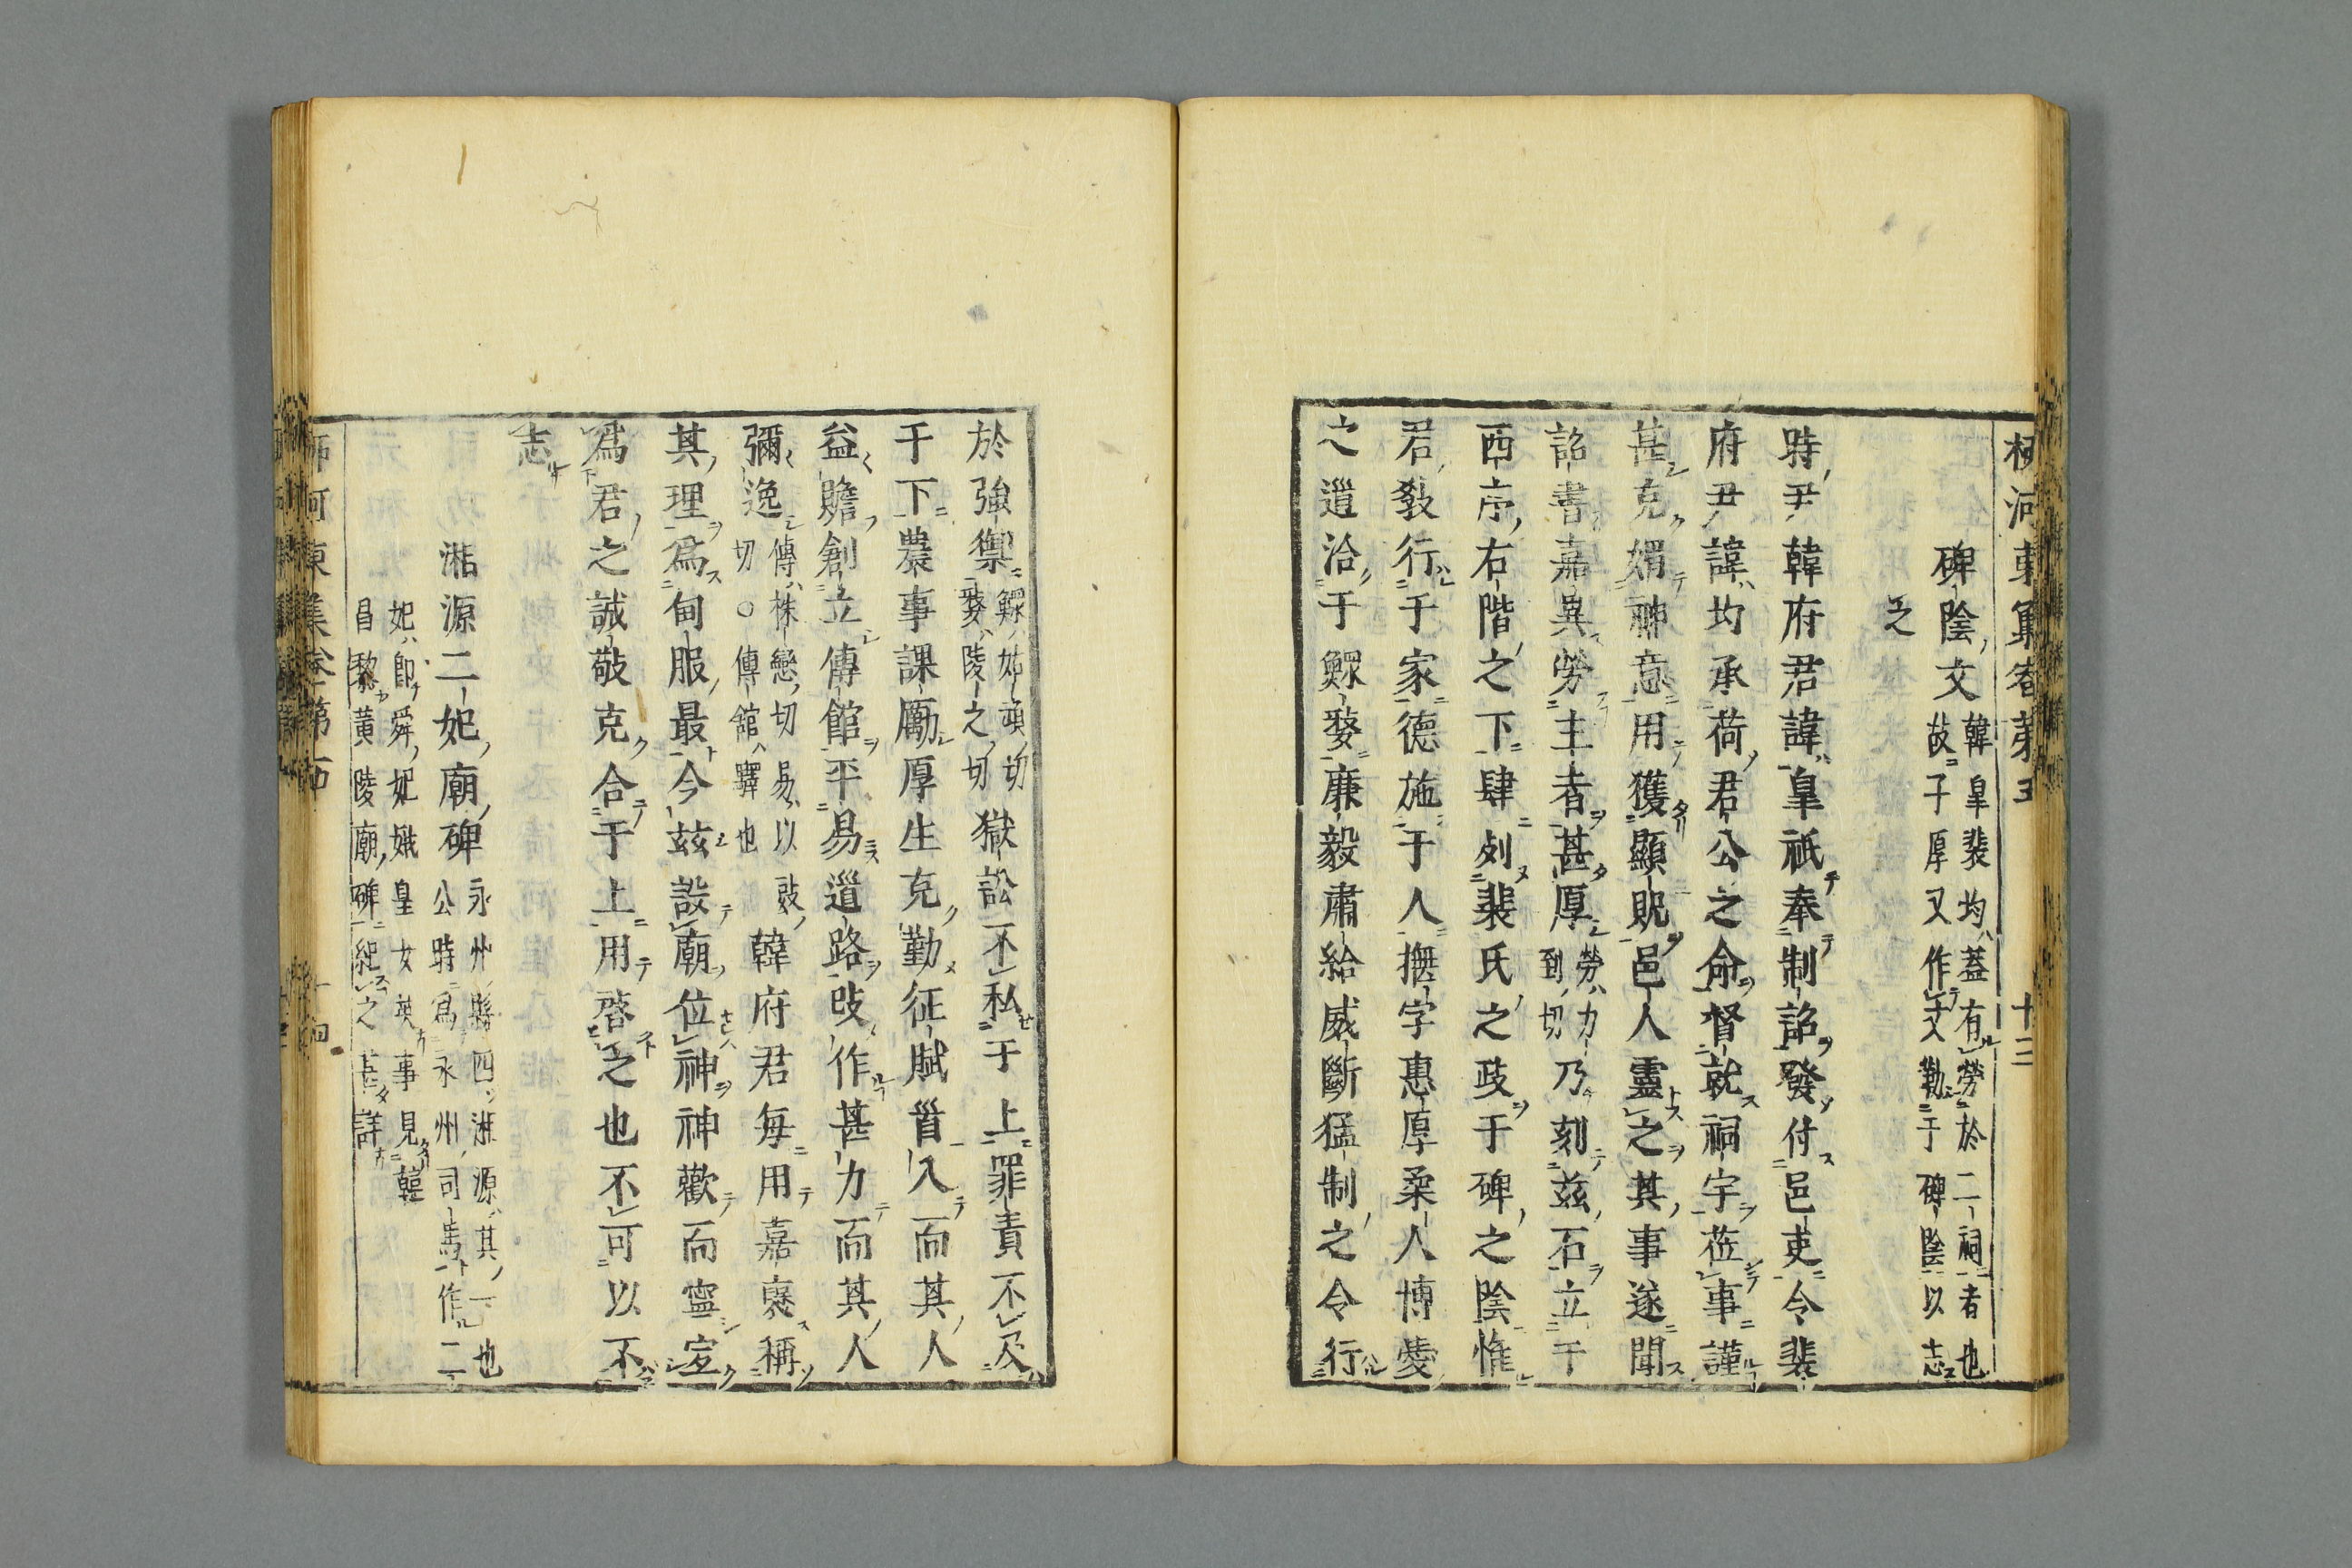 柳河東集卷第五 十三
碑陰文
韓皐裴均蓋有勞於二祠者也
故子厚又作文勒于碑陰以志
之
時尹韓府君諱皐祇奉制詔發付邑吏令裴
府尹諱均承荷君公之命督就祠宇莅事謹
甚克媚神意用獲顯貺邑人靈之其事遂聞
詔書嘉異勞主者甚厚
勞力
到切
乃刻茲石立于
西序右階之下肆列裴氏之政于碑之陰惟
君教行于家德施于人撫字惠厚柔人博愛
之道洽于鰥嫠廉毅肅給威斷猛制之令行
於強禦
鰥姑頑切
嫠陵之切
獄訟不私于上罪責不及
于下農事課勵厚生克勤征賦首入而其人
益贍創立傳館平易道路改作甚力而其人
彌逸
傳株戀切易以豉
切○傳館驛也
韓府君每用嘉褒稱
其理爲甸服最今茲設廟位神神歡而寧宜
爲君之誠敬克合于上用啓之也不可以不
志
湘源二妃廟碑
永州縣四湘源其一也
公時爲永州司馬作二
妃卽舜妃娥皇女英事見韓
昌黎黃陵廟碑紀之甚詳
柳河東集卷第五 十四